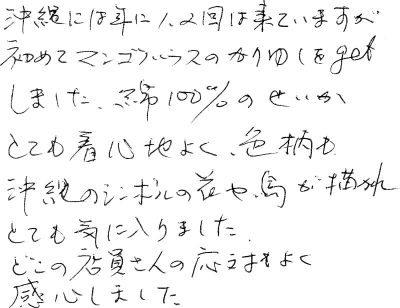 沖縄には年に1、2回は来ていますが
初めてマンゴハウスのかりゆしをget
しました、綿100%のせいか
とても着心地よく、色柄も
沖縄のシンボルの花や鳥が描かれ
とても気に入りました。
どこの店員さんの応対もよく
感心しました